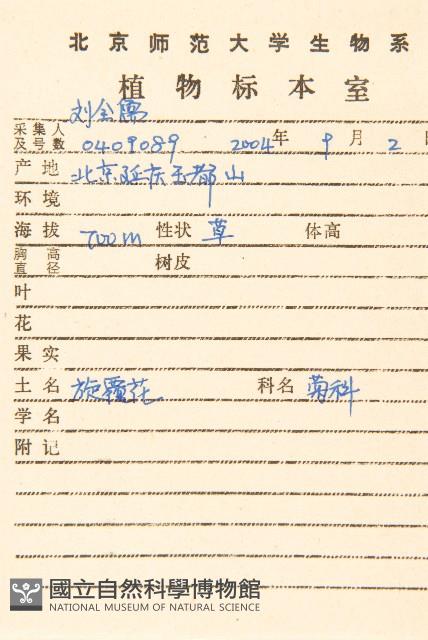 北京师范大学生物系
植物标本室
采集人及号数 刘全儒 0409089 2004年 9月 2日
产地 北京延庆玉都山
环境
海拔 700m 性状 草 体高
胸高直径 树皮
叶
花
果实
土名 旋覆花 科名 菊科
学名
附记
國立自然科學博物館
NATIONAL MUSEUM OF NATURAL SCIENCE